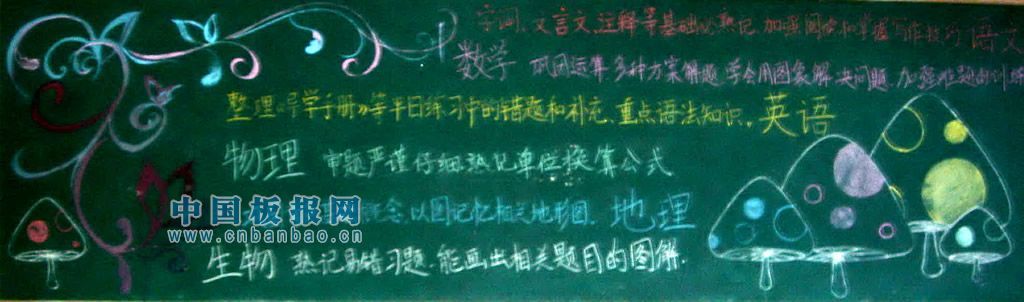 字词、文言文、注释等基础必熟记，加强阅读和掌握写作技巧 语文
数学 巩固运算多种方案解题，学会用图象解决问题，加强难题的训练
整理《导学手册》等平日练习中的错题和补充，重点语法知识。英语
物理 审题严谨仔细熟记单位换算公式
概念，以图记忆相关地形图．地理
生物 熟记易错习题．能画出相关题目的图解．
中国板报网
www.cnbanbao.cn